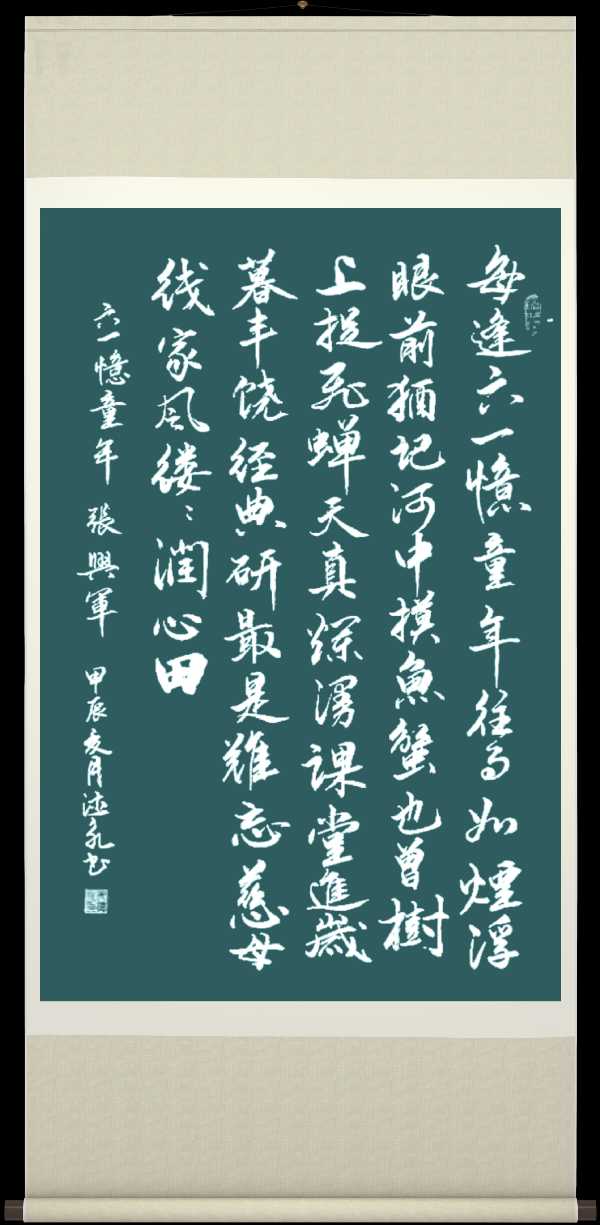 每逢六一憶童年往事如煙浮
眼前猶记河中摸魚蟹也曾樹
上捉飛蟬天真爛漫課堂進歲
暮丰饶经典研最是難忘慈母
线家风缕〻潤心田
六一憶童年 張興軍 甲辰夏月永书